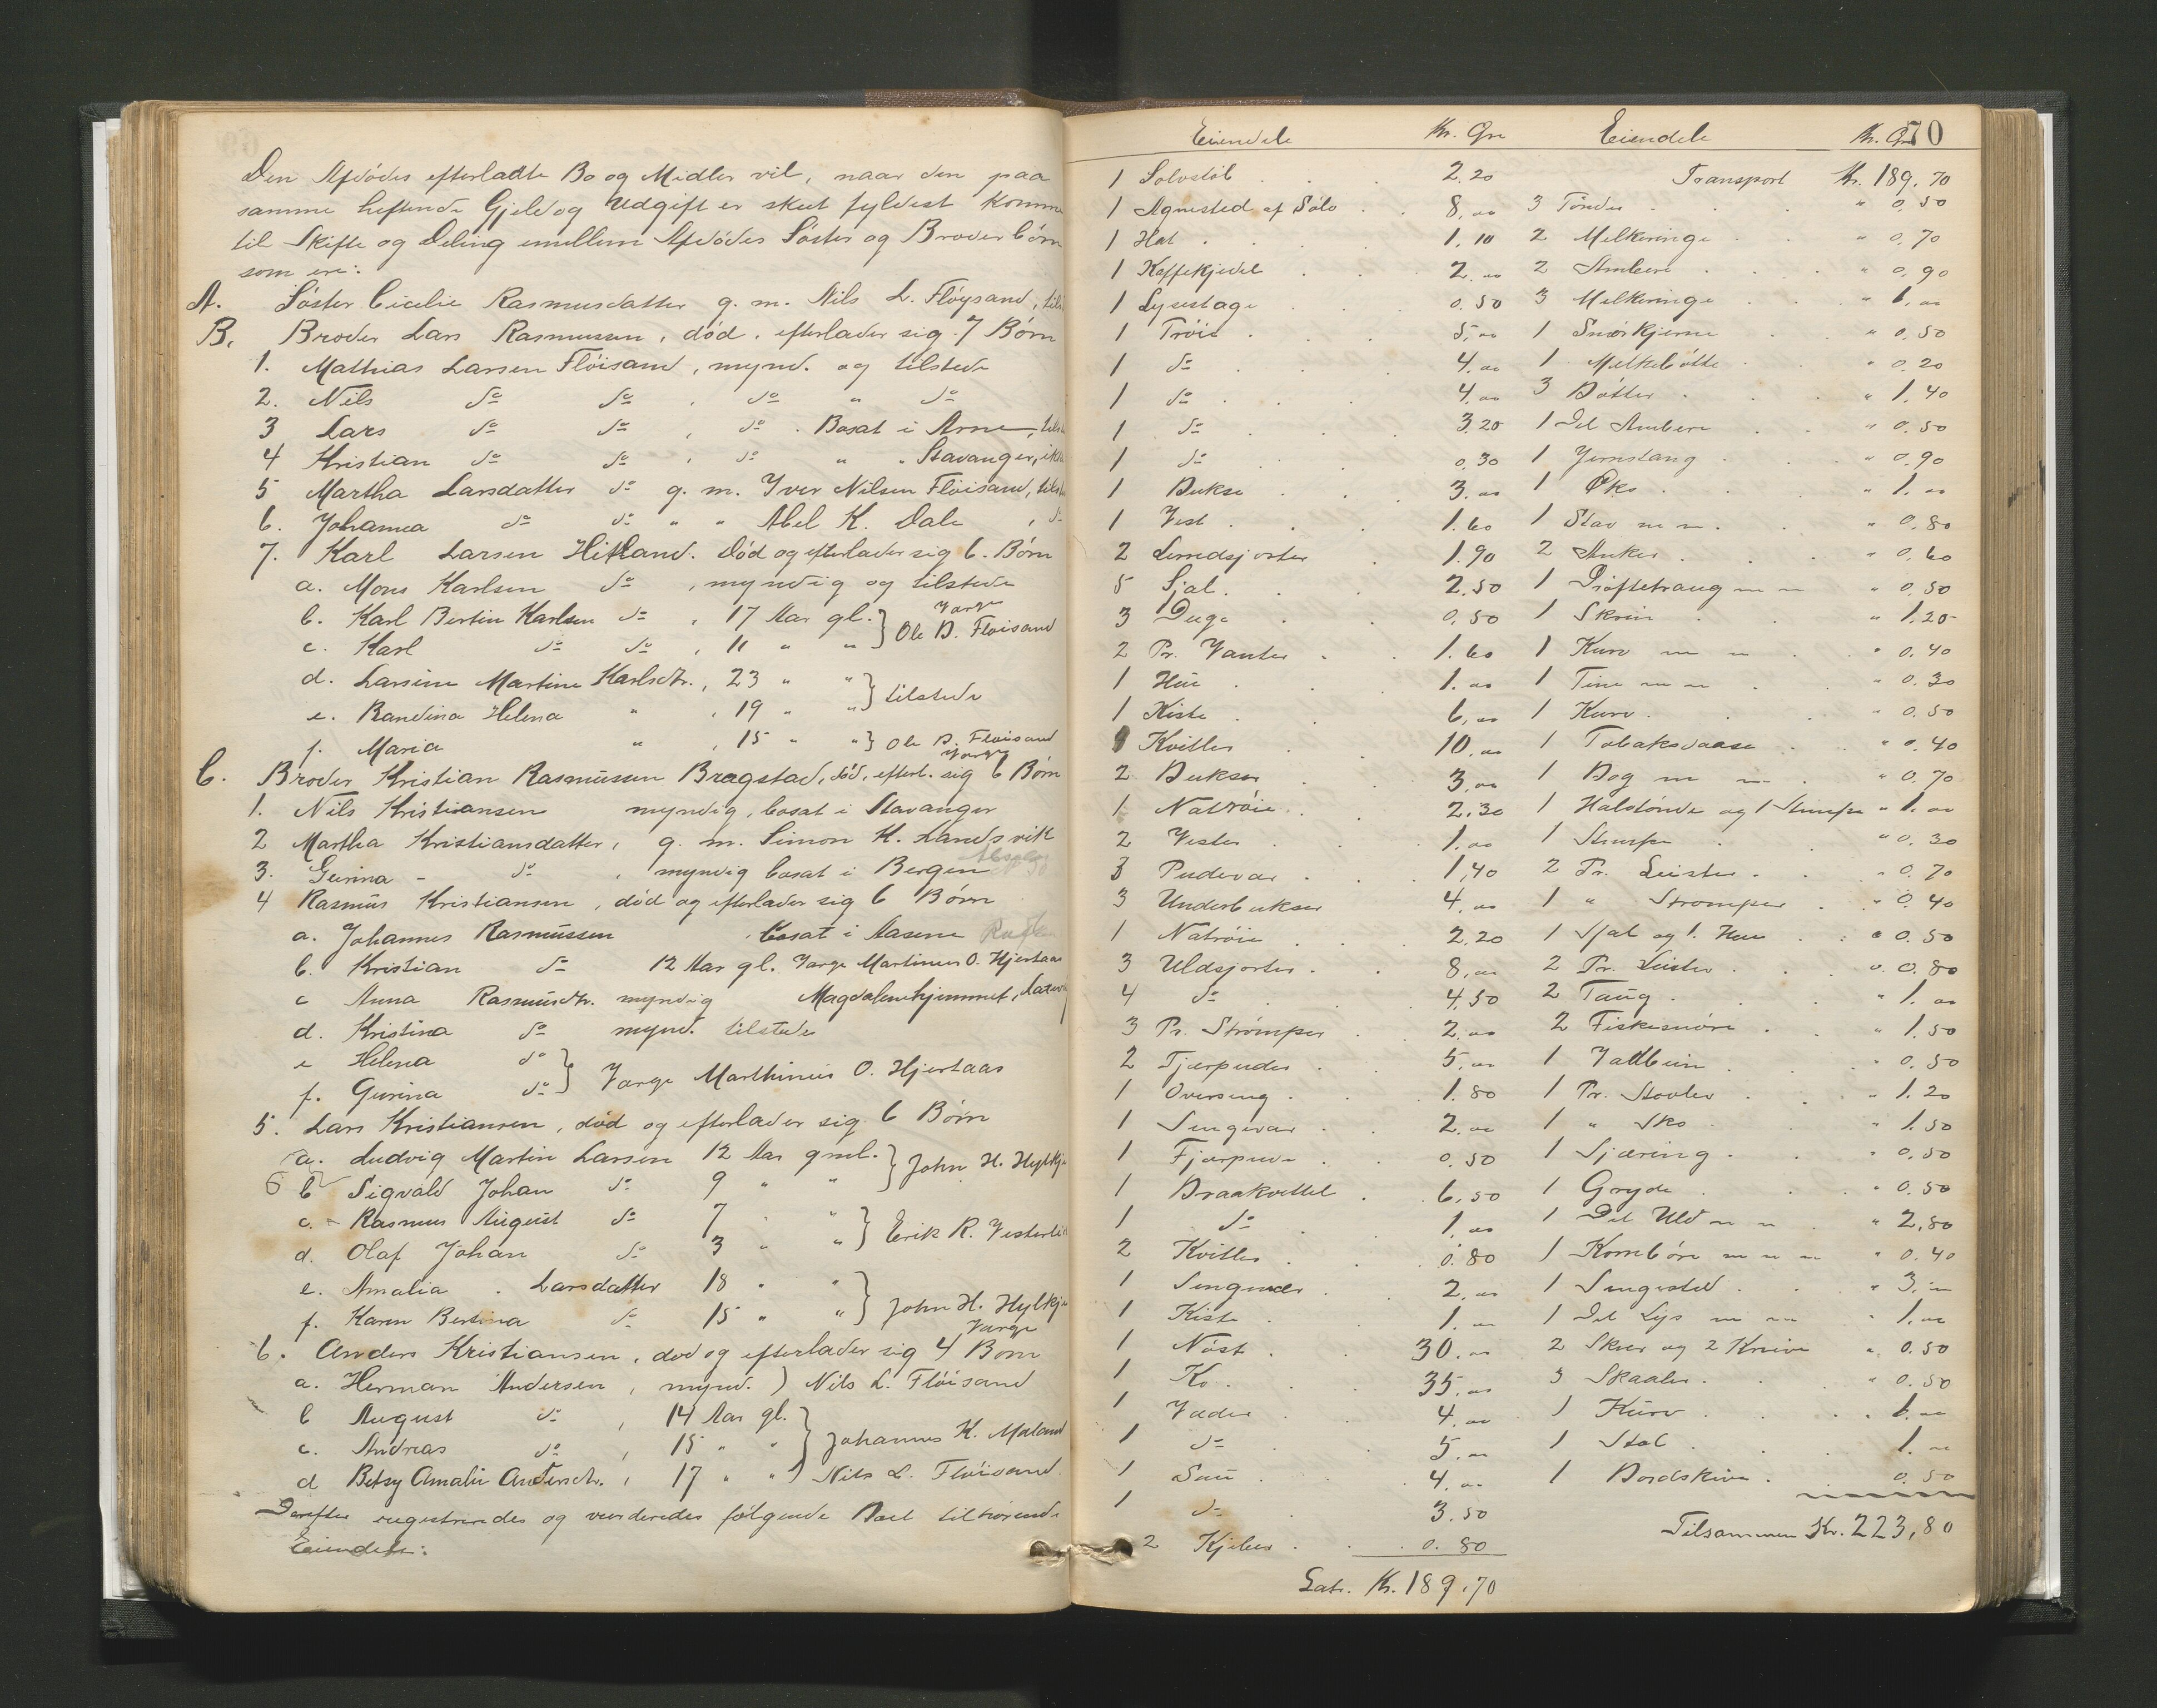 Den Afdødes efterladte Bo og Midler vil, naar den paa
samme heftende Gjeld og Udgift er skeet fyldest komme
til Skifte og Deling imellem Afdødes Søster og Broderbørn
som ere:
A. Søster Cicelie Rasmusdatter g. m. Nils L. Fløysand,
B. Broder Lars Rasmussen, død, efterlader sig 7 Børn
1. Mathias Larsen Fløisand, mynd. og tilstede
2. Nils do do, do " do
3 Lars do do, do. Bosat i Arne,
4 Kristian do do, do " " Stavanger,
5 Martha Larsdatter do g. m. Iver Nilsen Fløisand,
6. Johanna do do " " Abel K. Dale, do
7. Karl Larsen Hitland. Død og efterlader sig 6. Børn
a. Mons Karlsen do, myndig og tilstede
b. Karl Bertin Karlsen do, 17 Aar gl. } Værge
c. Karl do do, 11 " " } Ole B. Fløisand
d. Larsine Martine Karlsdtr., 23 " " } tilstede
e. Randina Helena " , 19 " "
f. Maria " , 15 " " } Ole B. Fløisand
Værge
C. Broder Kristian Rasmussen Bragstad, død, efterl. sig 6 Børn
1. Nils Kristiansen myndig, bosat i Stavanger
2 Martha Kristiansdatter, g. m. Simon K. Landsvik
3. Gurina - do, myndig bosat i Bergen
4 Rasmus Kristiansen, død og efterlader sig 6 Børn
a. Johannes Rasmussen bosat i Aasene
b. Kristian do 12 Aar gl. Værge Martinus O. Hjertaas
c Anna Rasmusdtr. myndig Magdalenehjemmet,
d. Kristina do mynd. tilstede
e Helena do
f. Gurina do } Værge Marthinus O. Hjertaas
5. Lars Kristiansen, død og efterlader sig 6 Børn
a. Ludvig Martin Larsen 12 Aar gml. } John H. Hylkje
6 b Sigvald Johan do 9 " "
c. Rasmus August do 7 " " } Erik R. Vesterli
d. Olaf Johan do 3 " "
e. Amalia . Larsdatter 18 " " } John H. Hylkje
f. Karen Bertina do 15 " " Værge
6. Anders Kristiansen, død og efterlader sig 4 Børn
a. Herman Andersen, mynd. ) Nils L. Fløisand
b August do, 14 Aar gl. } Johannes K. Møland
c. Andreas do, 15 " "
d Betsy Amalie Andersdtr., 17 " " ) Nils L. Fløisand
Derefter registreredes og vurderedes følgende Boet tilhørende
Eiendele:
70
Eiendele Kr. Øre
1 Solvstøb 2.20
1 Agnested af Sølv 8,00
1 Hat 1,10
1 Kaffekjedel 2.00
1 Lysestage 0.50
1 Trøie 5,00
1 do 4.00
1 do 4,00
1 do 3.20
1 do 0.30
1 Bukse 3.00
1 Vest 1.60
2 Lerredsjorter 1.90
5 Sjal 2.50
3 Duge 0,50
2 Pr. Vanter 1.60
1 Hue 1.00
1 Kiste 6,00
Kvitler 10.00
2 Bukser 3,00
1 Nattrøie 2,30
2 Vester 1.00
3 Pudevar 1,40
3 Underbukser 4,00
1 Natrøie 2,20
3 Uldsjorter 8,00
4 do 4,50
3 Pr. Strømper 2,00
2 Fjærpuder 5,00
1 Overseng 1.80
1 Sengevar 2.00
1 Fjærpude 0.50
1 Braakvittel 6,50
1 do 1,00
2 Kvitler 0.80
1 Sengunder 2,00
1 Kiste 1.00
1 Nøst 30.00
1 Ko 35,00
1 Væder 4,00
1 do 5.00
1 Sau 4.00
1 do 3.50
2 Kjeler 0.80
Latr. Kr. 189,70
Eiendele Kr. Øre
Transport Kr. 189,70
3 Tønder " 0,50
2 Melkeringe " 0,70
2 Ambere " 0,90
3 Melkeringe " 1,00
1 Smørkjerne " 0,50
1 Melkebøtte " 0.20
3 Bøtter " 1.40
1 Del Ambere " 0.50
1 Jernstang " 0.90
1 Øks " 1.00
1 Stav m m. " 0,80
2 Anker " 0,60
1 Drøftetraug m m " 0,50
1 Skrin " 1.20
1 Kurv m m " 0.40
1 Tine m m " 0.30
1 Kurv " 0.50
1 Tobaksdaase " 0.40
1 Bog m m " 0.70
1 Halvtønde og 1 Stampe " 1.00
1 Stampe " 0.30
2 Pr. Leister " 0.70
1 " Strømper " 0.40
1 Sjal og 1. Hue " 0.50
2 Pr. Leister " 0.80
2 Taug " 1.00
2 Fiskesnøre " 1.50
1 Vadbein " 0.50
1 Pr. Støvler " 1.20
1 " Sko " 1.50
1 Sjæring " 0.50
1 Gryde " 0.50
1 Del Uld m m " 2,80
1 Kornbøre m m m " 0.40
1 Sengested " 3.00
1 Del Lys m m " 1.00
2 Skeer og 2 Knive " 0.50
3 Skaaler " 0.50
1 Kurv " 1.00
1 Stol 1.00
1 Bordskive 0.50
Tilsammen Kr. 223,80